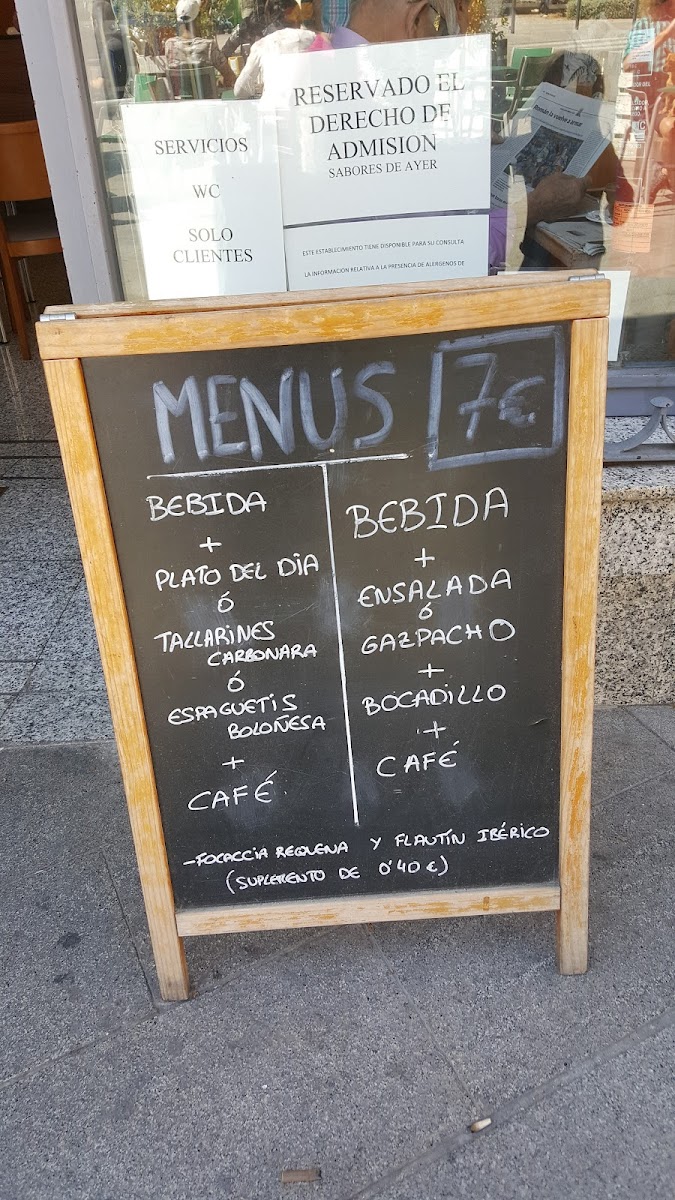 SERVICIOS
WC
SOLO
CLIENTES
RESERVADO EL
DERECHO DE
ADMISION
SABORES DE AYER
ESTE ESTABLECIMIENTO TIENE DISPONIBLE PARA SU CONSULTA
LA INFORMACION RELATIVA A LA PRESENCIA DE ALERGENOS DE
MENUS 7€
BEBIDA
+
PLATO DEL DIA
ó
TALLARINES
CARBONARA
ó
ESPAGUETIS
BOLOÑESA
+
CAFÉ
BEBIDA
+
ENSALADA
ó
GAZPACHO
+
BOCADILLO
+
CAFÉ
-FOCACCIA REQUENA Y FLAUTÍN IBÉRICO
(SUPLEMENTO DE 0'40 €)